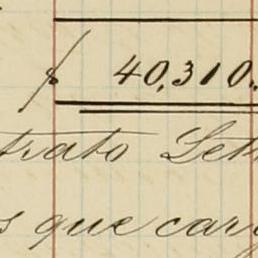 $ 40,310.
trato Let
s que car